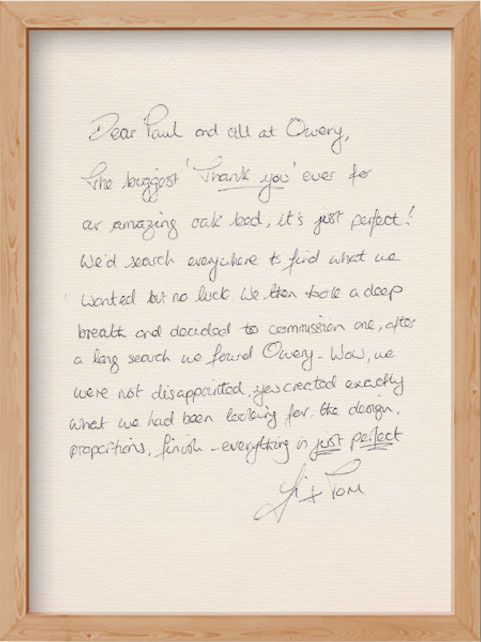 Dear Paul and all at Owery,
The biggest 'Thank you' ever for
our amazing oak bed, it's just perfect!
We'd search everywhere to find what we
wanted but no luck. We then took a deep
breath and decided to commission one, after
a long search we found Owery - Wow, we
were not disappointed, you created exactly
what we had been looking for. the design,
proportions, finish - everything is just perfect
+ Tom